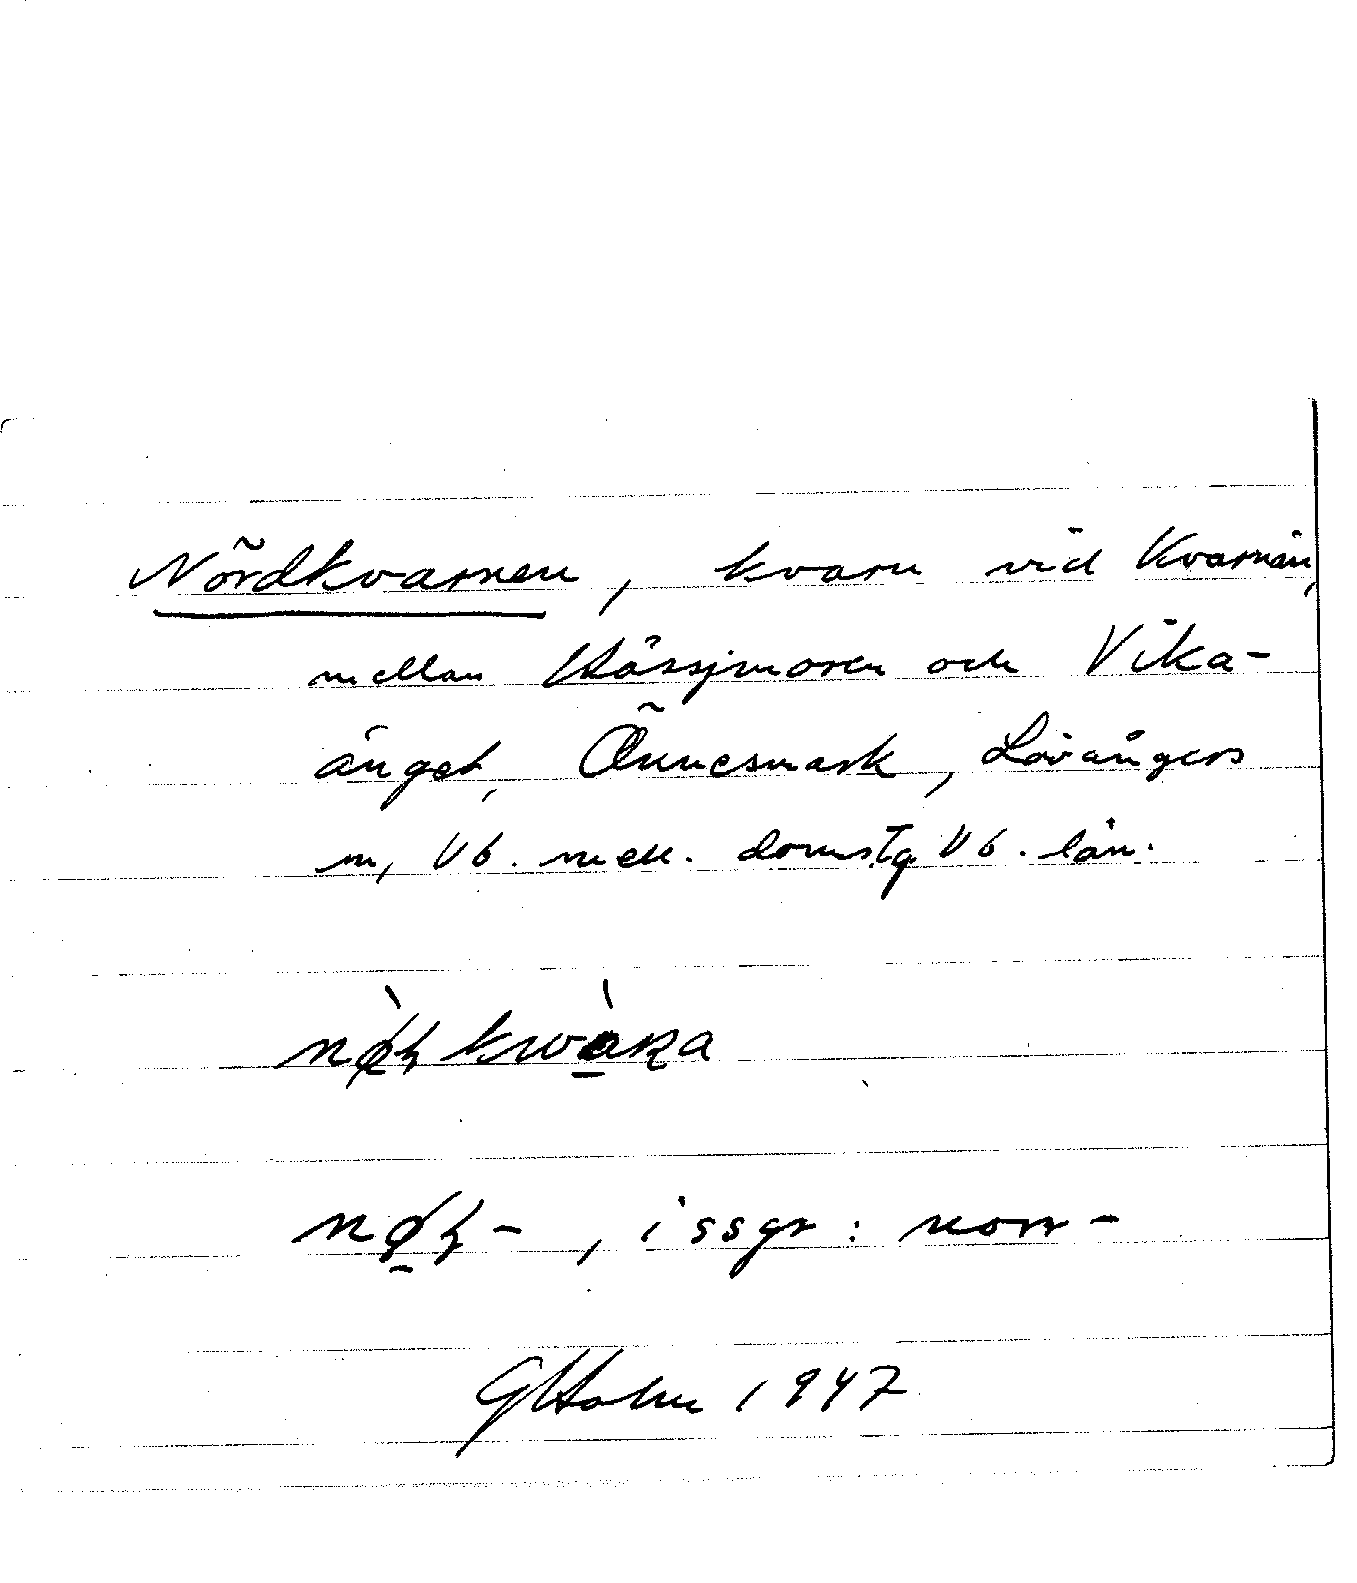 Nõrdkvarnen, kvarn vid Kvarnån,
mellan Hässjmoren och Vika-
änget, Õnnesmark, Lövångers
sn, Vb. mell. domstg Vb. län.
, i ssgr: norr-
GHolm 1947